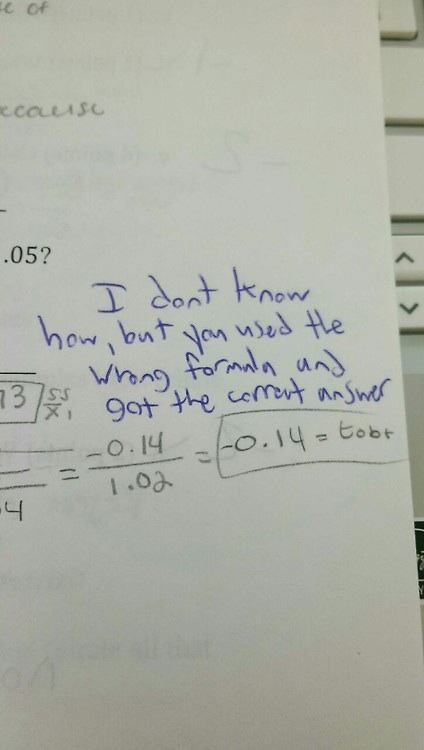 se of
ecause
.05?
I dont know
how, but you used the
wrong formula and
got the correct answer
73 SS/X1
= -0.14/1.02 = -0.14 = tobt
04